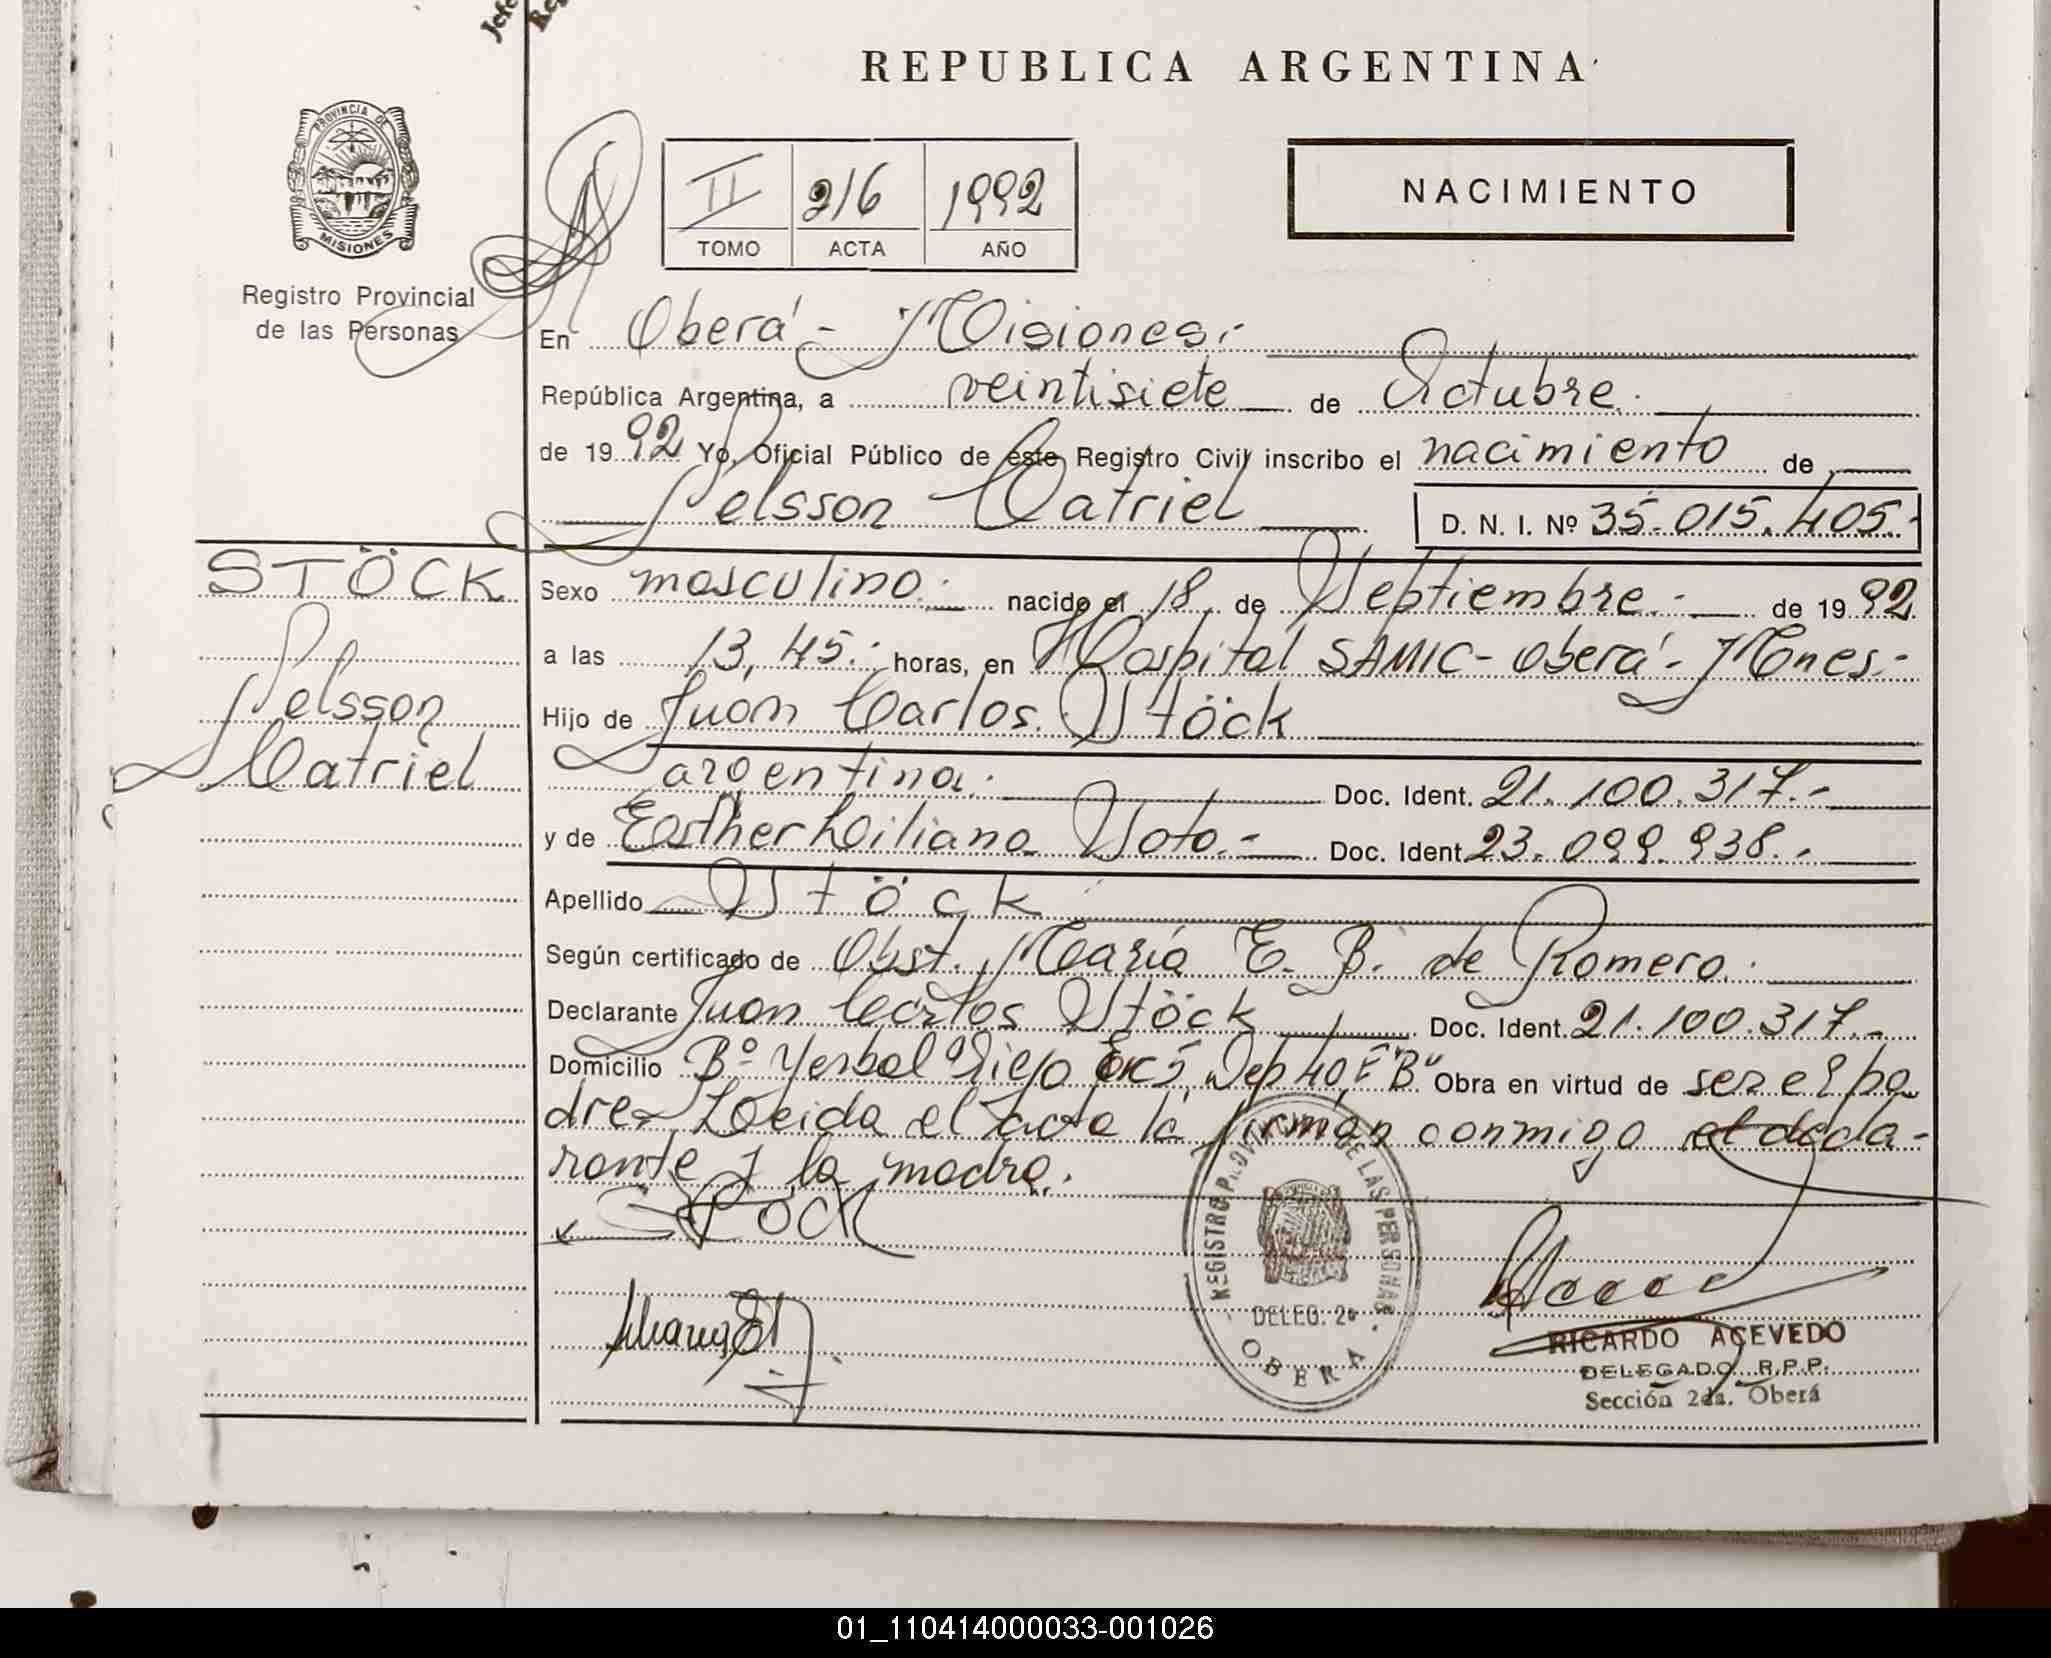 Jefe
Reg
REPUBLICA ARGENTINA
PROVINCIA DE
MISIONES
Registro Provincial
de las Personas
II 216 1992
TOMO ACTA AÑO
NACIMIENTO
En Oberá - Misiones.-
República Argentina, a veintisiete de Octubre.
de 19 92 Yo, Oficial Público de este Registro Civil inscribo el nacimiento de
Nelsson Catriel D. N. I. Nº 35.015.405.-
STÖCK
Nelsson
Catriel
Sexo masculino.- nacido el 18 de Septiembre.- de 19 92
a las 13,45.- horas, en Hospital SAMIC - Oberá - Mnes.-
Hijo de Juan Carlos Stöck
argentina. Doc. Ident. 21.100.317.-
y de Esther Liliana Soto.- Doc. Ident 23.099.938.-
Apellido Stöck
Según certificado de Obst. María E. B. de Romero.
Declarante Juan Carlos Stöck Doc. Ident. 21.100.317.-
Domicilio Bº Yerbal Viejo Dep 40 "B" Obra en virtud de ser el pa
dre. Leida el acta la firman conmigo el decla-
rante y la madre.
Stöck
REGISTRO PROVINCIAL DE LAS PERSONAS
DELEG. 2a
OBERA
RICARDO ACEVEDO
DELEGADO R.P.P.
Sección 2da. Oberá
01_110414000033-001026